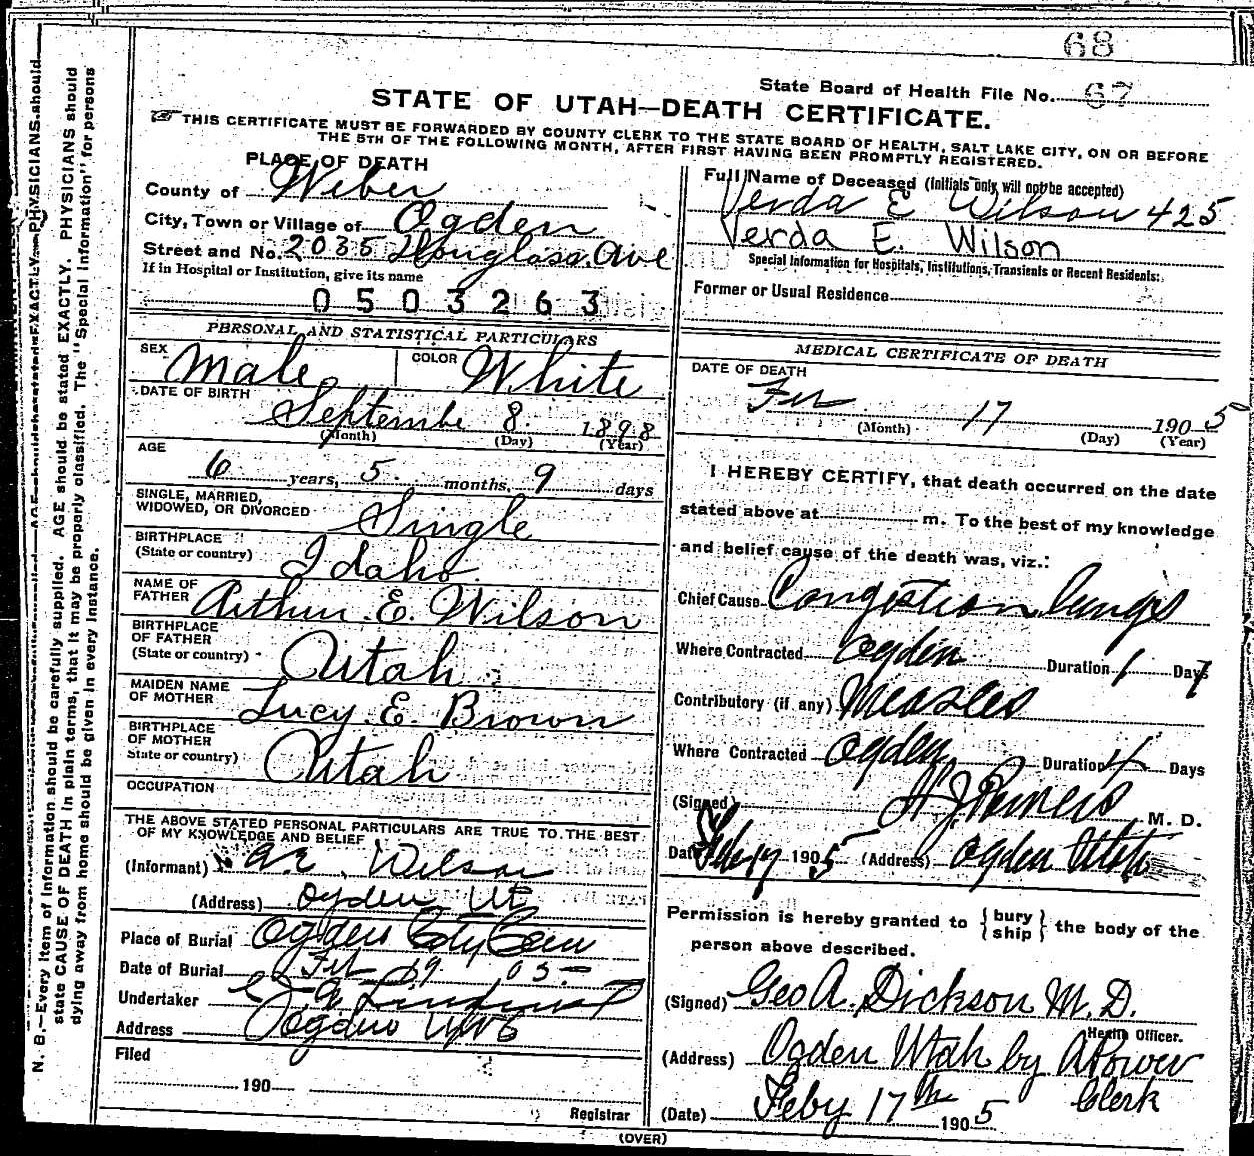 68
State Board of Health File No. 67
STATE OF UTAH—DEATH CERTIFICATE.
THIS CERTIFICATE MUST BE FORWARDED BY COUNTY CLERK TO THE STATE BOARD OF HEALTH, SALT LAKE CITY, ON OR BEFORE
THE 5TH OF THE FOLLOWING MONTH, AFTER FIRST HAVING BEEN PROMPTLY REGISTERED.
N. B.—Every item of information should be carefully supplied. AGE should be stated EXACTLY. PHYSICIANS should
state CAUSE OF DEATH in plain terms, that it may be properly classified. The "Special Information" for persons
dying away from home should be given in every instance.
PLACE OF DEATH
County of Weber
City, Town or Village of Ogden
Street and No. 2035 Douglass Ave
If in Hospital or Institution, give its name
0503263
PERSONAL AND STATISTICAL PARTICULARS
SEX Male COLOR White
DATE OF BIRTH
Septembe 8. 1898
(Month) (Day) (Year)
AGE
6 years, 5 months, 9 days
SINGLE, MARRIED,
WIDOWED, OR DIVORCED Single
BIRTHPLACE
(State or country) Idaho
NAME OF
FATHER Arthur E. Wilson
BIRTHPLACE
OF FATHER
(State or country) Utah
MAIDEN NAME
OF MOTHER Lucy E. Brown
BIRTHPLACE
OF MOTHER
State or country) Utah
OCCUPATION
THE ABOVE STATED PERSONAL PARTICULARS ARE TRUE TO THE BEST
OF MY KNOWLEDGE AND BELIEF
(Informant) A. E. Wilson
(Address) Ogden Ut
Place of Burial Ogden City Cem
Date of Burial Feb 19 05
Undertaker
Address Ogden
Filed
190
Registrar
Full Name of Deceased (Initials only will not be accepted)
Verda E Wilson 425
Verda E. Wilson
Special Information for Hospitals, Institutions, Transients or Recent Residents:
Former or Usual Residence
MEDICAL CERTIFICATE OF DEATH
DATE OF DEATH
17 1905
(Month) (Day) (Year)
I HEREBY CERTIFY, that death occurred on the date
stated above at m. To the best of my knowledge
and belief cause of the death was, viz.:
Chief Cause Congestion lungs
Where Contracted Ogden Duration 1 Days
Contributory (if any) Measles
Where Contracted Ogden Duration 4 Days
(Signed) M. D.
Date Feb 17 1905 (Address) Ogden Utah
Permission is hereby granted to {bury
ship} the body of the
person above described.
(Signed) Geo A. Dickson M. D.
Health Officer.
(Address) Ogden Utah by
Clerk
(Date) Feby 17th 1905
(OVER)